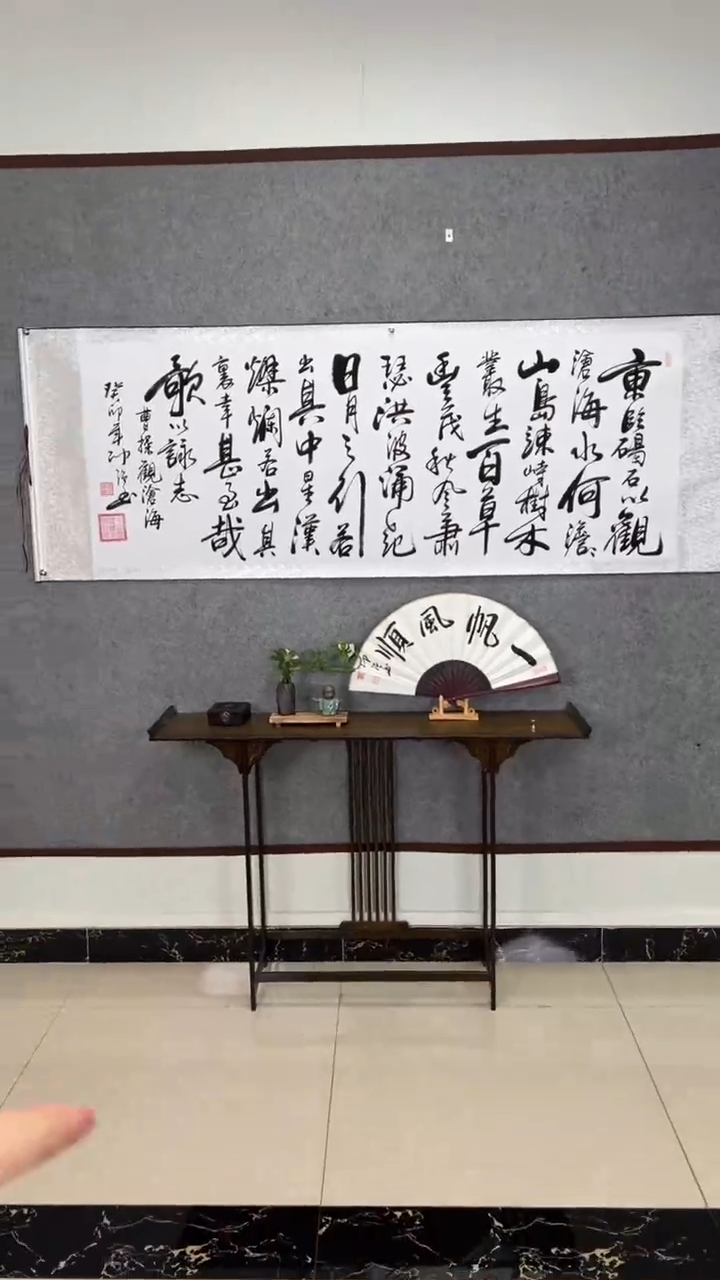 東臨碣石以觀
滄海水何澹
山島竦峙樹木
叢生百草
豐茂秋風蕭
瑟洪波涌起
日月之行若
出其中星漢
燦爛若出其
裏幸甚至哉
歌以詠志
曹操觀滄海
癸卯年
一帆風順